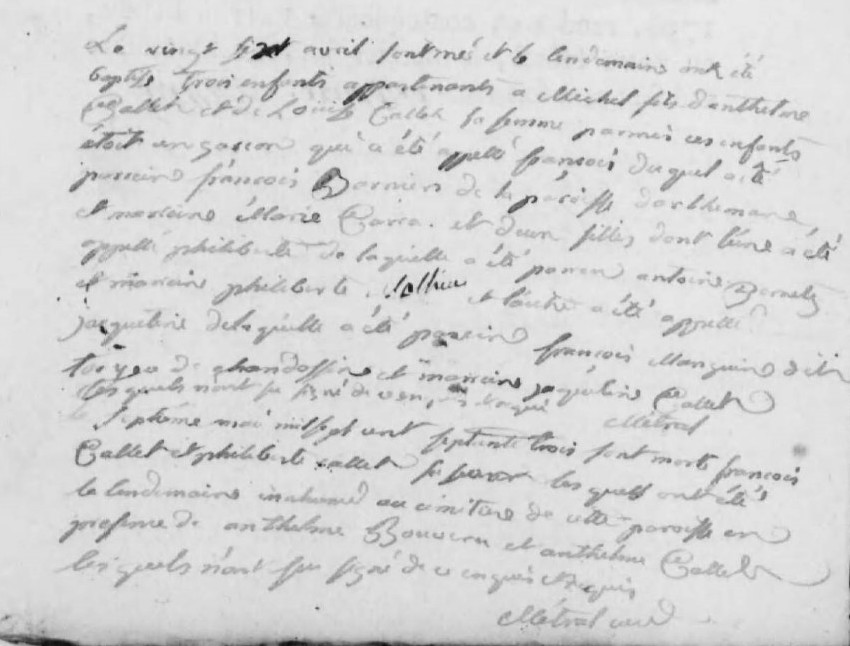 Le vingt sept avril sont nés et le lendemains ont été
baptisé trois enfants appartenants a Michel fils d'anthelme
Callet et de Louise Callet sa femme parmis ces enfants
étoit un garcon qui a été appellé francois duquel a été
parrain francois de la paroisse darthemare
et marraine Marie et deux filles dont l'une a été
appellé philiberte de laquelle a été parrain antoine
et marraine philiberte et l'autre a été appellé
jacqueline de laquelle a été parrain francois Manguin dit
de et marraine jaqueline Callet
les quels n'ont su signé de ce enquis et requis
Métral
le septième mai mille sept cent septante trois sont morts francois
Callet et philiberte callet sa soeur les quels ont été
le lendemains inhumés au cimitiere de cette paroisse en
presence de anthelme et anthelme Callet
les quels n'ont su signé de ce enquis et requis
Métral curé